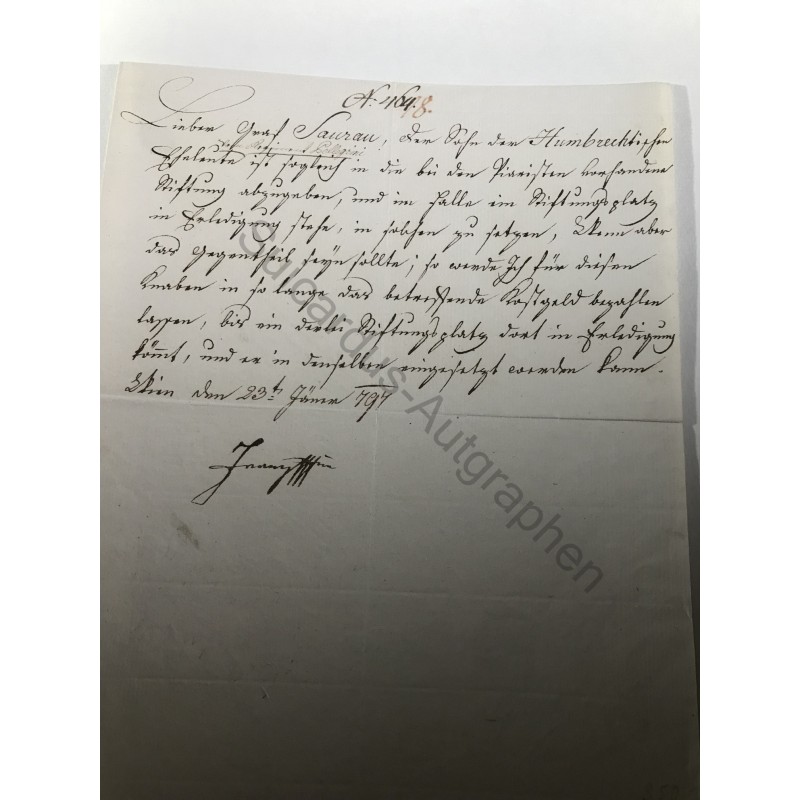 N. 464.
78.
Lieber Graf Saurau, der Sohn der Humbrechtischen
vom Regiment Pellegrini
Eheleute ist sogleich in die bei den Piaristen vorhandene
Stiftung abzugeben, und im Falle ein Stiftungsplatz
in Erledigung stehe, in solchen zu setzen, Wenn aber
das Gegentheil seyn sollte; so werde Ich für diesen
Knaben in so lange das betreffende Kostgeld bezahlen
lassen, bis ein derlei Stiftungsplatz dort in Erledigung
kömmt, und er in denselben eingesetzt werden kann.
Wien den 23t. Jäner 797
Franz
Suicardus-Autgraphen